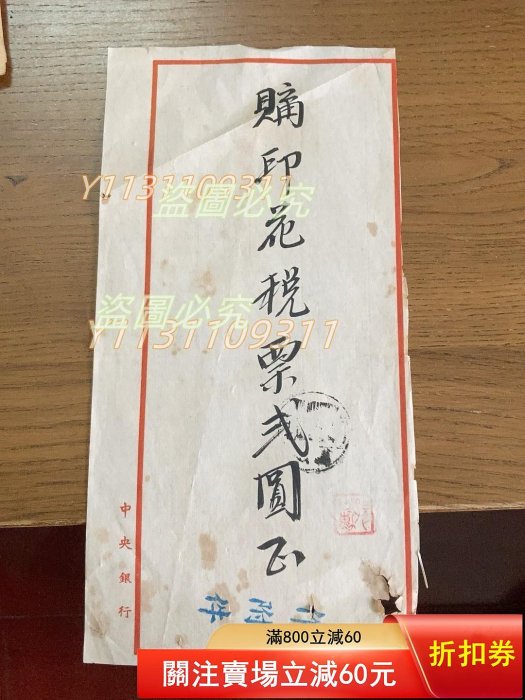 購印花税票弍圓正
Y1131109311
盜圖必究
盜圖必究
Y1131109311
中央銀行
滿800立減60
關注賣場立減60元
折扣券